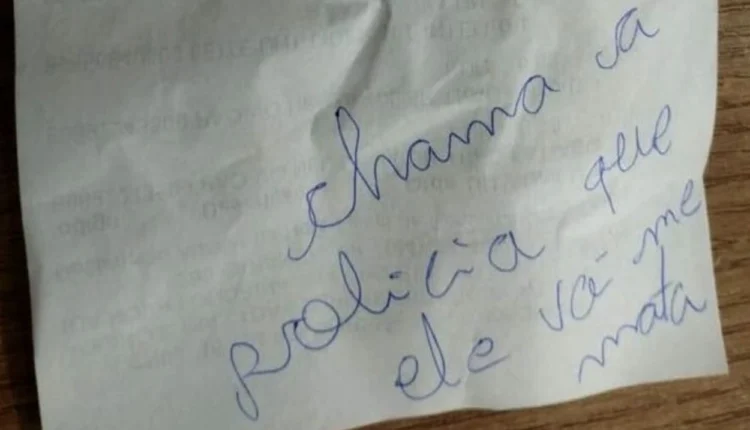 chama va
policia que
ele vá me
mata